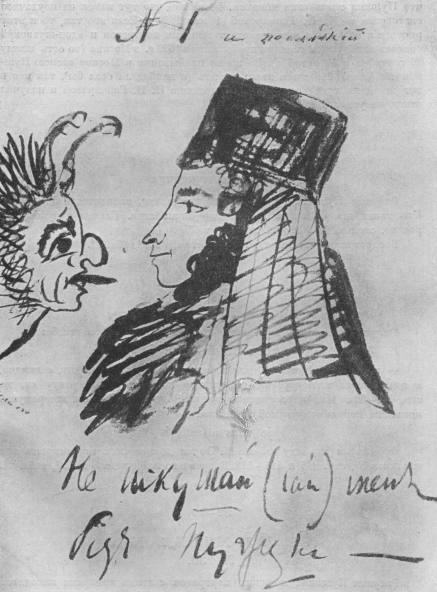 № 1 и последній
Не искушай (сай) меня
без нужды —